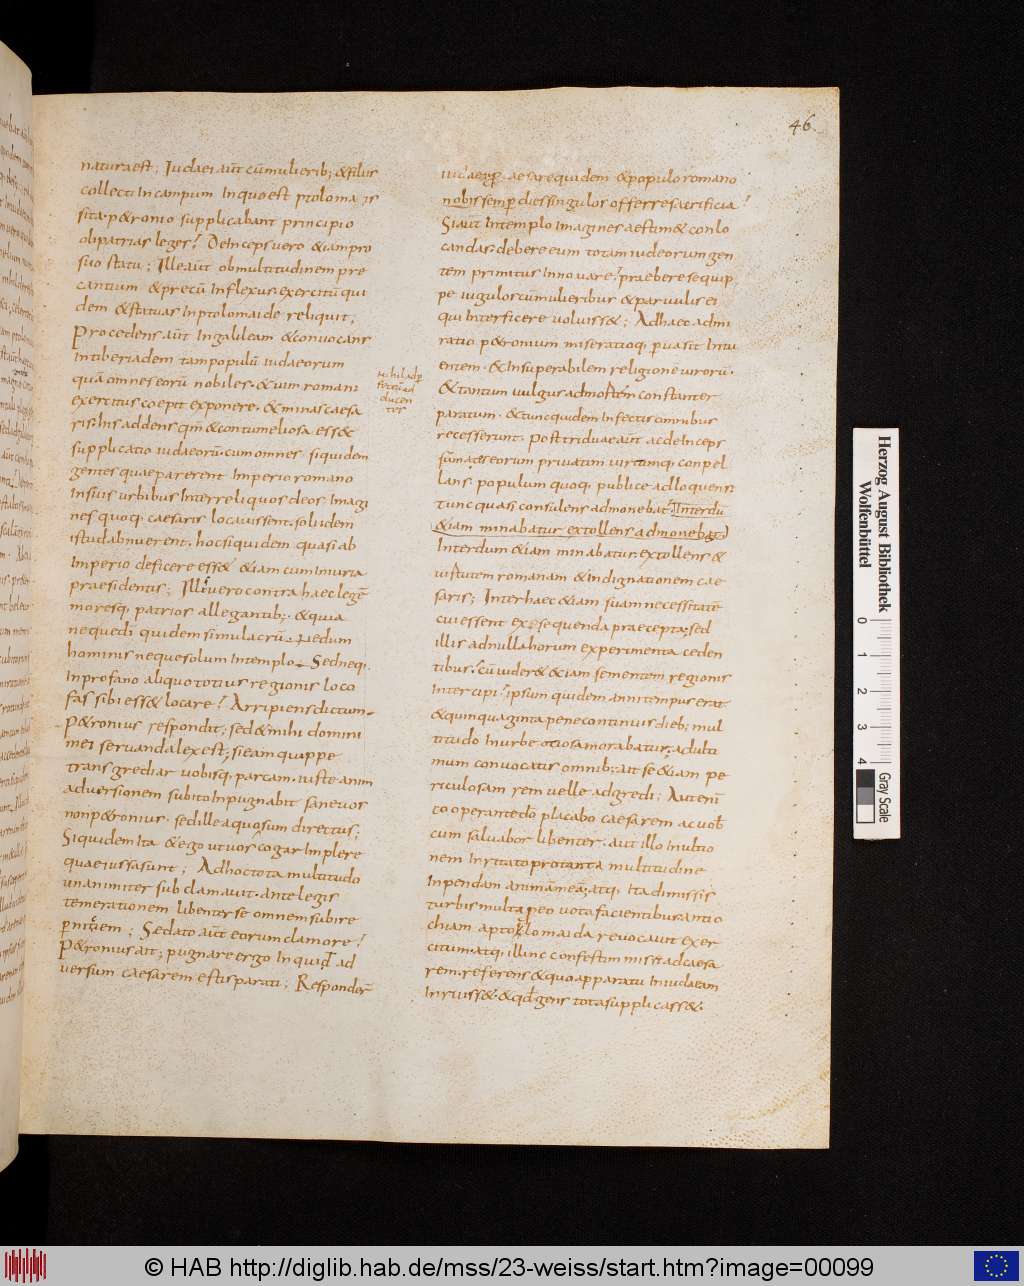 46
natura est; Iudaei aut̄ cū mulierib; & filiis
collecti In campum In quo est ptolomais
sita. p&ronio supplicabant principio
ob patrias leges! Deinceps uero & iam pro
suo statu; Ille aut̄ ob multitudinem pre
cantium & precū Inflexus. exercitū qui
dem & statuas In ptolomaide reliquit;
Procedens aut̄ In galileam & conuocans
In tiberiadem tam populū iudaeorum
quā omnes eorū nobiles. & uim romani
exercitus coepit exponere. & minas caesa
ris. his addens qm̄ & contumeliosa ess&
supplicatio iudaeorū. cum omnes siquidem
gentes quae parerent Imperio romano
In suis urbibus Inter reliquos deos Imagi
nes quoq; caesaris locauissent. soli idem
istud abnuerent. hoc siquidem quasi ab
Imperio deficere ess& & iam cum Iniuria
praesidentis; Illi uero contra haec legē
moresq; patrios allegantib;. & quia
neque dī quidem simulacrū.
hominis neque solum In templo. Sed neq;
In profano aliquo totius regionis loco
fas sibi ess& locare! Arripiens dictum
P&ronius respondit; sed & mihi domini
mei seruanda lex est; si eam quippe
transgrediar uobisq; parcam. iuste anim
aduersionem subito. Inpugnabit sane uos
non p&ronius. sed ille a quo sum directus;
Siquidem Ita & ego ut uos cogar Implere
quae iussa sunt; Ad hoc tota multitudo
unanimiter subclamauit. ante legis
temerationem libenter se omnem subire
p̄nitiem; Sedato aut̄ eorum clamore!
P&ronius ait; pugnare ergo Inquid ad
uersum caesarem estis parati; Responder̄
nobis semp̄ dies singulos offerre sacrificia!
Si aut̄ In templo Imagines aestum& conlo
candas. debere eum totam iudeorum gen
tem primitus Innouare! praebere se quip
pe iugulos cū mulieribus & paruulis ei
qui Interficere voluiss&; Ad haec admi
ratio p&ronium miseratioq; puasit Intu
entem. & Insuperabilem religione uirorū.
& tantum uulgus ad mortem constanter
paratum. & tunc quidem Infectis omnibus
recesserunt. Post tridua aut̄ ac deinceps
sūmates eorum priuatim uirtimq; conpel
lans. populum quoq; publice adloquens;
tunc quasi consulens admonebat Interdū
& iam minabatur extollens admonebat
Interdum & iam minabatur extollens &
uirtutem romanam & Indignationem cae
saris; Inter haec & iam suam necessitatē
cui essent exsequenda praecepta; sed
illis ad nulla horum experimenta ceden
tibus. cū uider& & iam sementem regionis
Intercipi! ipsum quidem anni tempus erat
& quinquaginta pene continuis dieb; mul
titudo In urbe otiosa morabatur. ad ulti
mum conuocatis omnib; ait se & iam pe
riculosam rem uelle adgredi; Aut enī
dō operante placabo caesarem ac uob̄
cum saluabor libenter. aut illo In ultio
nem Inritato pro tanta multitudine
Inpendam animā meā; atq; Ita dimissis
turbis multa p eo uota facientibus. antio
chiam a ptolomaida reuocauit exer
citum. atq; illinc confestim misit ad caesa
rem. referens & quo apparatu In iudaeam
Inruiss&. & qd̄ gens tota supplicass&.
nihil ad p
fectū ad
ducen
tes
Herzog August Bibliothek
Wolfenbüttel
0 1 2 3 4
Gray Scale
© HAB http://diglib.hab.de/mss/23-weiss/start.htm?image=00099